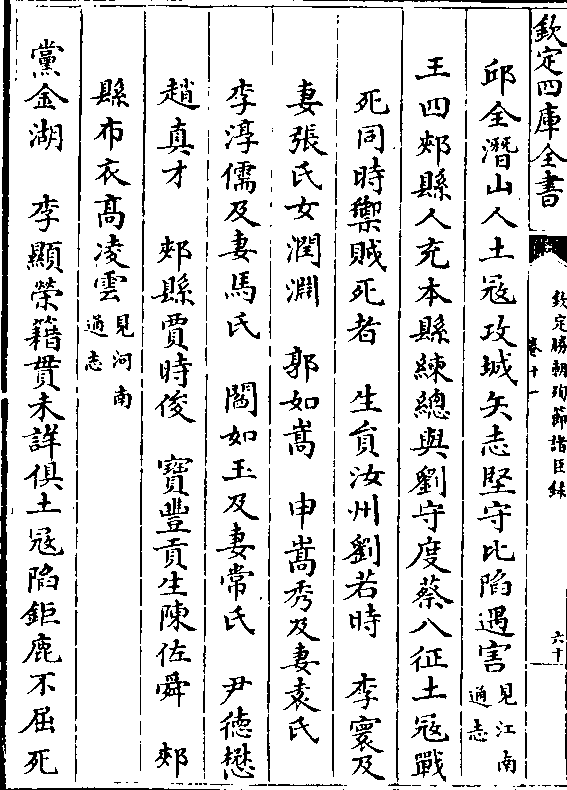 欽定四庫全書
欽定勝朝殉節諸臣録
卷十一
六十
邱全潛山人土冦攻城矢志堅守比陷遇害見江南通志
王四郟縣人充本縣練總與劉守度蔡八征土冦戰
死同時禦賊死者　生員汝州劉若時　李寰及
妻張氏女潤淵　郭如嵩　申嵩秀及妻袁氏
李淳儒及妻馬氏　閻如玉及妻常氏　尹德懋
趙真才　郟縣賈時俊　寶豐貢生陳佐舜　郟
縣布衣髙凌雲見河南通志
黨金湖　李顯榮籍貫未詳俱土冦陷鉅鹿不屈死